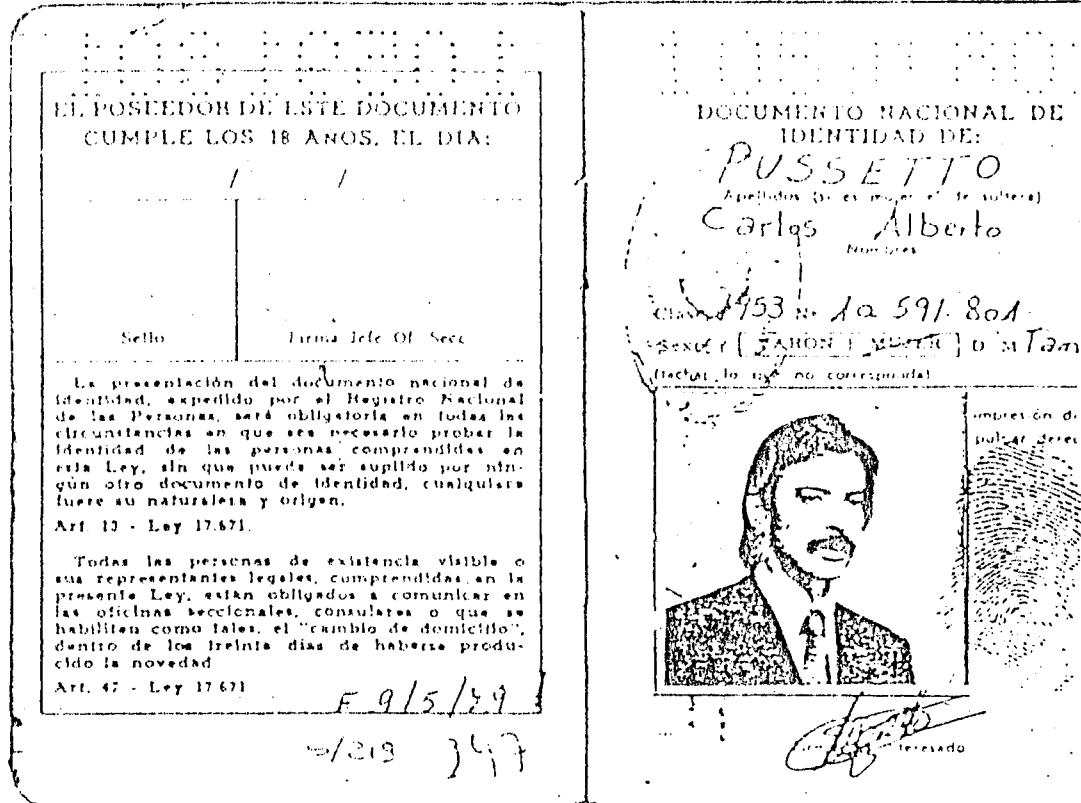 EL POSEEDOR DE ESTE DOCUMENTO
CUMPLE LOS 18 AÑOS, EL DIA:
/ /
Sello
Firma Jefe Of. Secc
La presentación del documento nacional de
identidad, expedido por el Registro Nacional
de las Personas, será obligatoria en todas las
circunstancias en que sea necesario probar la
identidad de las personas comprendidas en
esta Ley, sin que pueda ser suplido por nin-
gún otro documento de identidad, cualquiera
fuere su naturaleza y origen.
Art. 13 - Ley 17.671.
Todas las personas de existencia visible o
sus representantes legales, comprendidas en la
presente Ley, están obligados a comunicar en
las oficinas seccionales, consulares o que se
habiliten como tales, el "cambio de domicilio",
dentro de los treinta días de haberse produ-
cido la novedad
Art. 47 - Ley 17.671
/219 347
DOCUMENTO NACIONAL DE
IDENTIDAD DE:
PUSSETTO
Apellidos (si es mujer el de soltera)
Carlos Alberto
Nombres
Clase 1953 Nº 10 591.801
Sexo [VARON] [MUJER] D M Tam
(tachar lo que no corresponda)
impresión di
pulgar derec
interesado